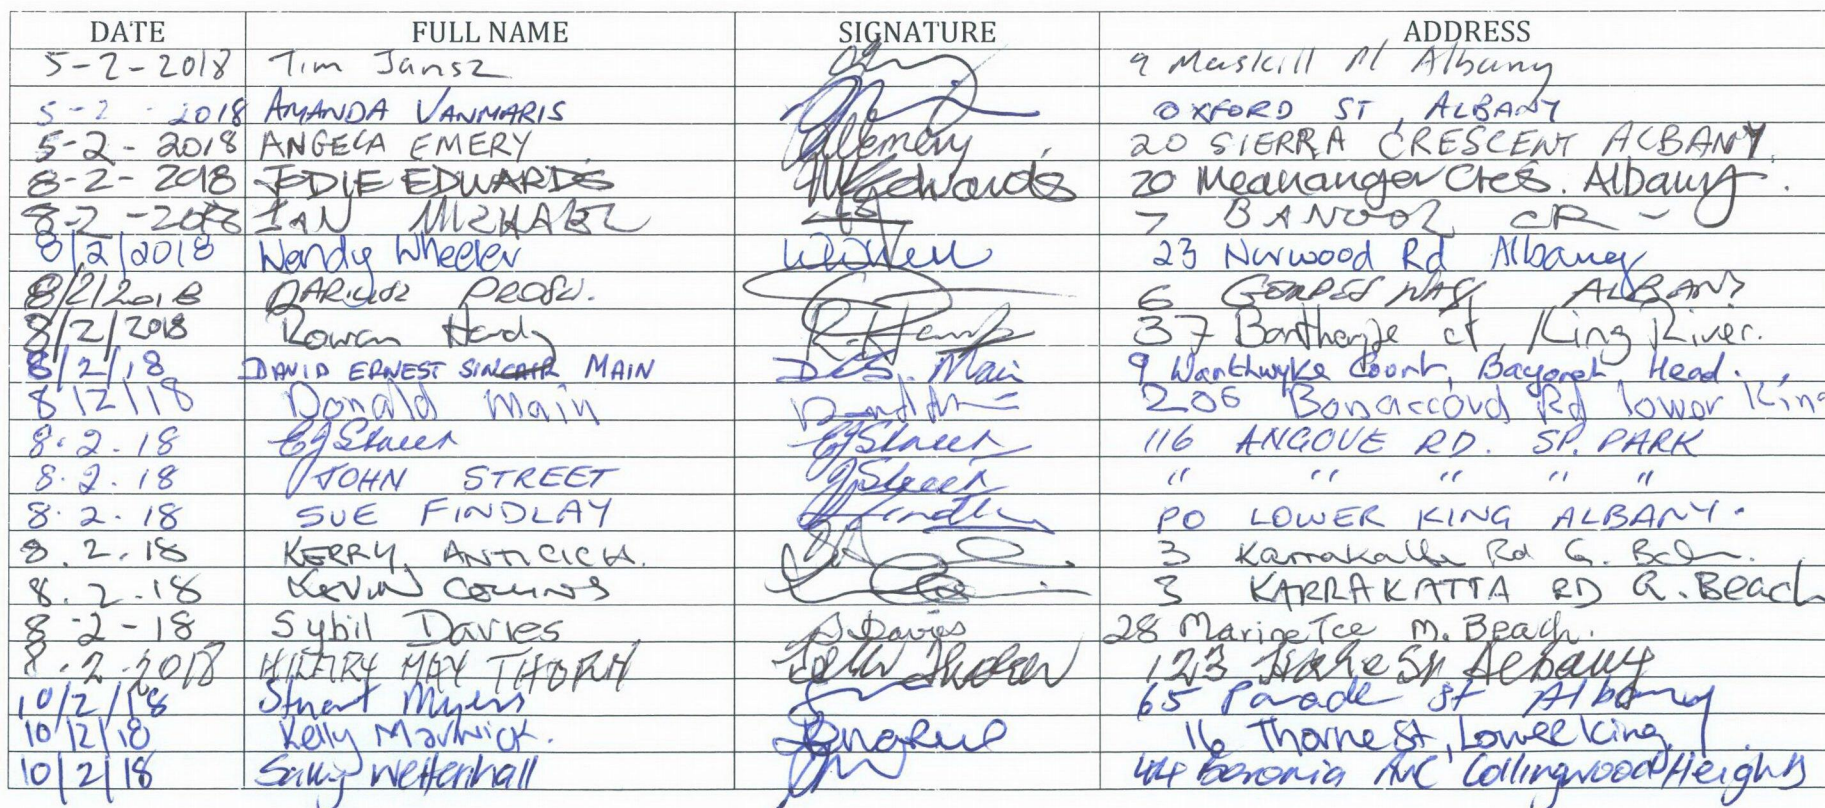 DATE FULL NAME SIGNATURE ADDRESS
5-2-2018 Tim Jansz 9 Maskill Pl Albany
5-2-2018 AMANDA VANMARIS OXFORD ST, ALBANY
5-2-2018 ANGELA EMERY AEmery 20 SIERRA CRESCENT ALBANY
8-2-2018 EDIE EDWARDS Edwards 20 Meananger Cres. Albany.
8-2-2018 IAN 7 CR
8/2/2018 Wendy Wheeler 23 Norwood Rd Albany
8/2/2018 6 ALBANY
8/2/2018 Rowan Hardy 37 ct, King River.
8/2/18 DAVID ERNEST SINCLAIR MAIN D.E.S. Main 9 Court, Head.
8/2/18 Donald Main 206 Bonaccord Rd lower King
8.2.18 EJ Street EJ Street 116 ANGOVE RD. SP. PARK
8.2.18 JOHN STREET J Street " " " " "
8.2.18 SUE FINDLAY PO LOWER KING ALBANY.
8.2.18 KERRY ANTICICH. 3 Rd G.
8.2.18 KEVIN COLLINS 3 KARRAKATTA RD G. BEACH
8-2-18 Sybil Davies S Davies 28 Marine Tce M. Beach.
8.2.2018 HILARY MAY THORN 123 Albany
10/2/18 Stuart Myers 65 Parade St Albany
10/2/18 Kelly Marwick. 16 Thorne St, Lower King
10/2/18 Sally Wettenhall 44 Boronia Ave Collingwood Heights